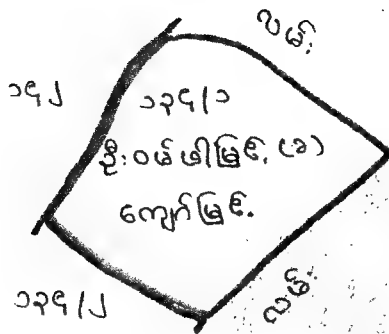 လမ်း
၁၄၂
၁၃၄/၁
ဦးဝမ်ဖါမြင့် (ခ)
ကျော်မြင့်
လမ်း
၁၃၄/၂